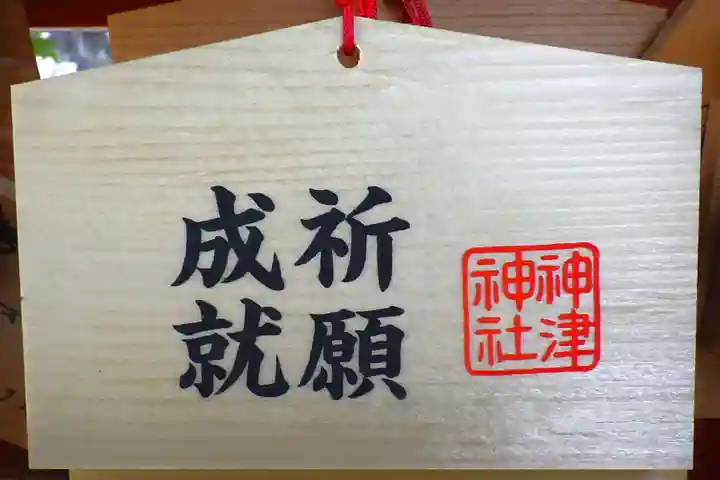 祈願
成就
神津
神社